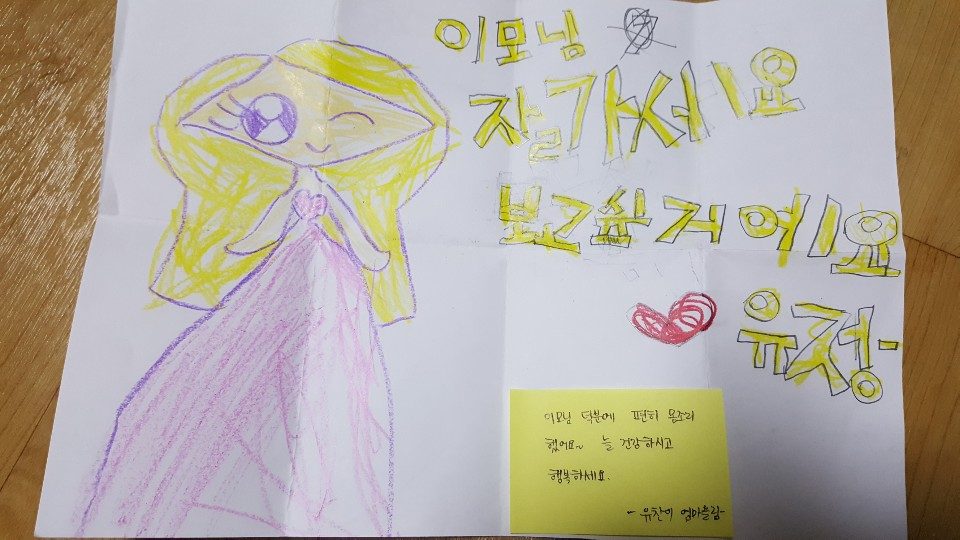 이모님
잘가서요
보고슾거에요
유정
이모님 덕분에 편히 몸조리
했어요~ 늘 건강하시고
행복하세요.
- 유찬이 엄마올림-